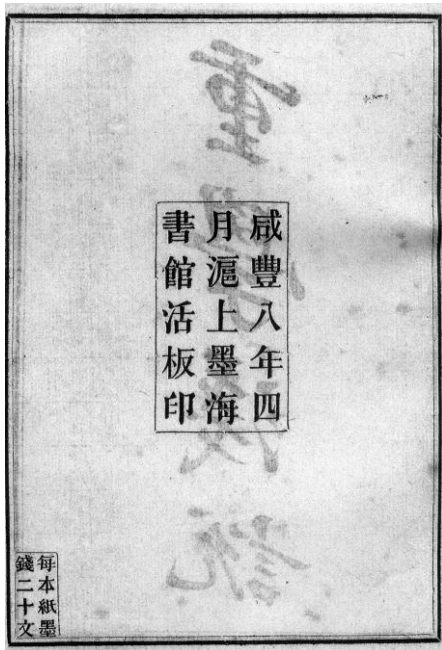 咸豐八年四
月滬上墨海
書館活板印
每本紙墨
錢二十文